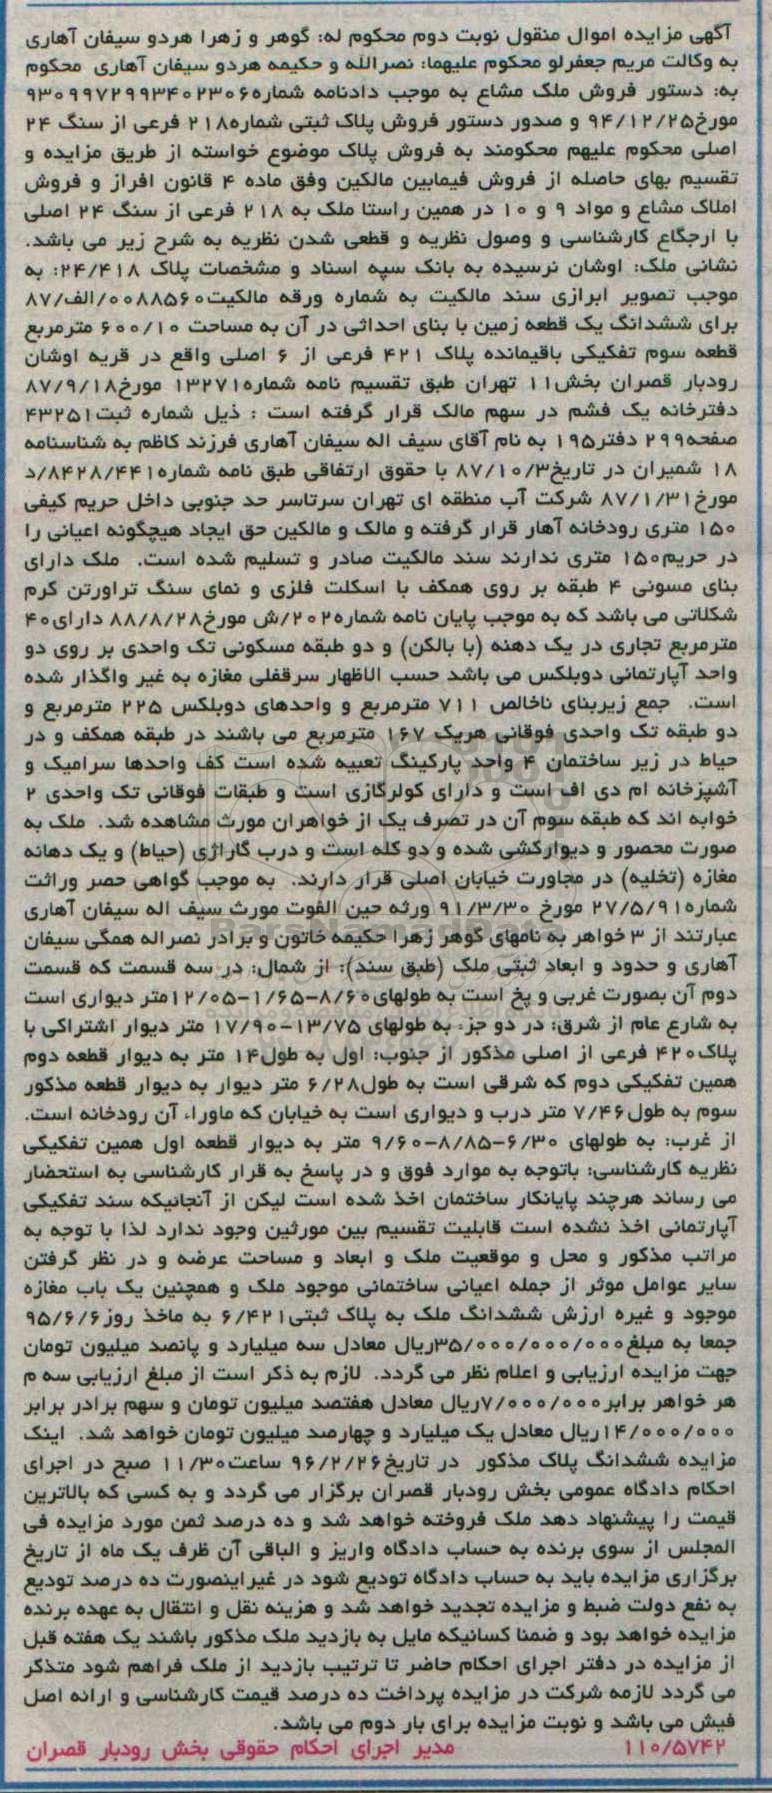 آگهی مزایده اموال منقول نوبت دوم محکوم له: گوهر و زهرا هردو سیفان آهاری
به وکالت مریم جعفرلو محکوم علیهما: نصرالله و حکیمه هردو سیفان آهاری محکوم
به: دستور فروش ملک مشاع به موجب دادنامه شماره۹۳۰۹۹۷۲۹۹۳۴۰۲۳۰۶
مورخ۹۴/۱۲/۲۵ و صدور دستور فروش پلاک ثبتی شماره۲۱۸ فرعی از سنگ ۲۴
اصلی محکوم علیهم محکومند به فروش پلاک موضوع خواسته از طریق مزایده و
تقسیم بهای حاصله از فروش فیمابین مالکین وفق ماده ۴ قانون افراز و فروش
املاک مشاع و مواد ۹ و ۱۰ در همین راستا ملک به ۲۱۸ فرعی از سنگ ۲۴ اصلی
با ارجگاع کارشناسی و وصول نظریه و قطعی شدن نظریه به شرح زیر می باشد.
نشانی ملک: اوشان نرسیده به بانک سپه اسناد و مشخصات پلاک ۲۴/۴۱۸: به
موجب تصویر ابرازی سند مالکیت به شماره ورقه مالکیت۰۰۸۸۵۶۰/الف/۸۷
برای ششدانگ یک قطعه زمین با بنای احداثی در آن به مساحت ۶۰۰/۱۰ مترمربع
قطعه سوم تفکیکی باقیمانده پلاک ۴۲۱ فرعی از ۶ اصلی واقع در قریه اوشان
رودبار قصران بخش۱۱ تهران طبق تقسیم نامه شماره۱۳۲۷۱ مورخ۸۷/۹/۱۸
دفترخانه یک فشم در سهم مالک قرار گرفته است : ذیل شماره ثبت۴۳۲۵۱
صفحه۲۹۹ دفتر۱۹۵ به نام آقای سیف اله سیفان آهاری فرزند کاظم به شناسنامه
۱۸ شمیران در تاریخ۸۷/۱۰/۳ با حقوق ارتفاقی طبق نامه شماره۸۴۲۸/۴۴۱/د
مورخ۸۷/۱/۳۱ شرکت آب منطقه ای تهران سرتاسر حد جنوبی داخل حریم کیفی
۱۵۰ متری رودخانه آهار قرار گرفته و مالک و مالکین حق ایجاد هیچگونه اعیانی را
در حریم۱۵۰ متری ندارند سند مالکیت صادر و تسلیم شده است. ملک دارای
بنای مسونی ۴ طبقه بر روی همکف با اسکلت فلزی و نمای سنگ تراورتن کرم
شکلاتی می باشد که به موجب پایان نامه شماره۲۰۲/ش مورخ۸۸/۸/۲۸ دارای۴۰
مترمربع تجاری در یک دهنه (با بالکن) و دو طبقه مسکونی تک واحدی بر روی دو
واحد آپارتمانی دوبلکس می باشد حسب الاظهار سرقفلی مغازه به غیر واگذار شده
است. جمع زیربنای ناخالص ۷۱۱ مترمربع و واحدهای دوبلکس ۲۲۵ مترمربع و
دو طبقه تک واحدی فوقانی هریک ۱۶۷ مترمربع می باشند در طبقه همکف و در
حیاط در زیر ساختمان ۴ واحد پارکینگ تعبیه شده است کف واحدها سرامیک و
آشپزخانه ام دی اف است و دارای کولرگازی است و طبقات فوقانی تک واحدی ۲
خوابه اند که طبقه سوم آن در تصرف یک از خواهران مورث مشاهده شد. ملک به
صورت محصور و دیوارکشی شده و دو کله است و درب گاراژی (حیاط) و یک دهانه
مغازه (تخلیه) در مجاورت خیابان اصلی قرار دارند. به موجب گواهی حصر وراثت
شماره۲۷/۵/۹۱ مورخ ۹۱/۳/۳۰ ورثه حین الفوت مورث سیف اله سیفان آهاری
عبارتند از ۳ خواهر به نامهای گوهر زهرا حکیمه خاتون و برادر نصراله همگی سیفان
آهاری و حدود و ابعاد ثبتی ملک (طبق سند): از شمال: در سه قسمت که قسمت
دوم آن بصورت غربی و پخ است به طولهای۸/۶۰-۱/۶۵-۱۲/۰۵متر دیواری است
به شارع عام از شرق: در دو جزء به طولهای ۱۳/۷۵-۱۷/۹۰ متر دیوار اشتراکی با
پلاک۴۲۰ فرعی از اصلی مذکور از جنوب: اول به طول۱۴ متر به دیوار قطعه دوم
همین تفکیکی دوم که شرقی است به طول۶/۲۸ متر دیوار به دیوار قطعه مذکور
سوم به طول۷/۴۶ متر درب و دیواری است به خیابان که ماوراء آن رودخانه است.
از غرب: به طولهای ۶/۳۰-۸/۸۵-۹/۶۰ متر به دیوار قطعه اول همین تفکیکی
نظریه کارشناسی: باتوجه به موارد فوق و در پاسخ به قرار کارشناسی به استحضار
می رساند هرچند پایانکار ساختمان اخذ شده است لیکن از آنجائیکه سند تفکیکی
آپارتمانی اخذ نشده است قابلیت تقسیم بین مورثین وجود ندارد لذا با توجه به
مراتب مذکور و محل و موقعیت ملک و ابعاد و مساحت عرصه و در نظر گرفتن
سایر عوامل موثر از جمله اعیانی ساختمانی موجود ملک و همچنین یک باب مغازه
موجود و غیره ارزش ششدانگ ملک به پلاک ثبتی۶/۴۲۱ به ماخذ روز۹۵/۶/۶
جمعا به مبلغ۳۵/۰۰۰/۰۰۰/۰۰۰ریال معادل سه میلیارد و پانصد میلیون تومان
جهت مزایده ارزیابی و اعلام نظر می گردد. لازم به ذکر است از مبلغ ارزیابی سه م
هر خواهر برابر۷/۰۰۰/۰۰۰ریال معادل هفتصد میلیون تومان و سهم برادر برابر
۱۴/۰۰۰/۰۰۰ریال معادل یک میلیارد و چهارصد میلیون تومان خواهد شد. اینک
مزایده ششدانگ پلاک مذکور در تاریخ۹۶/۲/۲۶ ساعت۱۱/۳۰ صبح در اجرای
احکام دادگاه عمومی بخش رودبار قصران برگزار می گردد و به کسی که بالاترین
قیمت را پیشنهاد دهد ملک فروخته خواهد شد و ده درصد ثمن مورد مزایده فی
المجلس از سوی برنده به حساب دادگاه واریز و الباقی آن ظرف یک ماه از تاریخ
برگزاری مزایده باید به حساب دادگاه تودیع شود در غیراینصورت ده درصد تودیع
به نفع دولت ضبط و مزایده تجدید خواهد شد و هزینه نقل و انتقال به عهده برنده
مزایده خواهد بود و ضمنا کسانیکه مایل به بازدید ملک مذکور باشند یک هفته قبل
از مزایده در دفتر اجرای احکام حاضر تا ترتیب بازدید از ملک فراهم شود متذکر
می گردد لازمه شرکت در مزایده پرداخت ده درصد قیمت کارشناسی و ارائه اصل
فیش می باشد و نوبت مزایده برای بار دوم می باشد.
۱۱۰/۵۷۴۲ مدیر اجرای احکام حقوقی بخش رودبار قصران